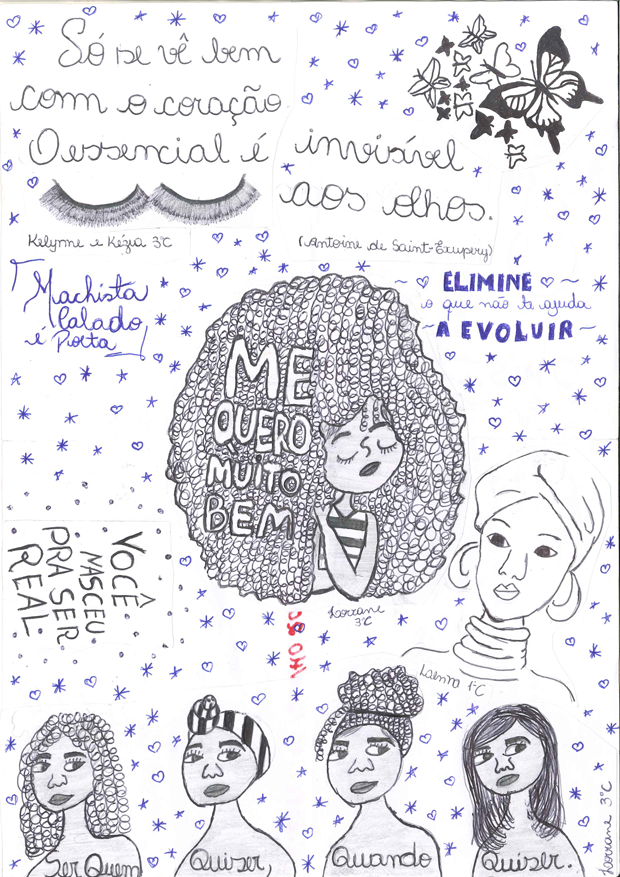 Só se vê bem
com o coração.
O essencial é invisível
aos olhos.
Kelynne e Kézia 3°C
(Antoine de Saint-Exupery)
Machista
Calado
é Poeta
ELIMINE
o que não te ajuda
A EVOLUIR
ME
QUERO
MUITO
BEM
Lorrane
3°C
VOCÊ
NASCEU
PRA SER
REAL
1°C
Ser Quem Quiser, Quando Quiser.
Lorrane 3°C